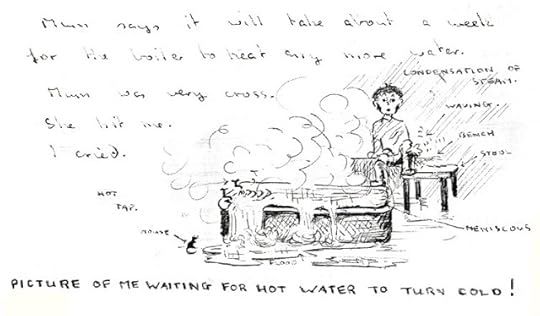 Mum says it will take about a week
for the boiler to heat any more water.
Mum was very cross.
She hit me.
I cried.
CONDENSATION OF
STEAM.
WAVING.
BENCH
STOOL
HOT
TAP.
MOUSE
FLOOD
MENISCOUS
PICTURE OF ME WAITING FOR HOT WATER TO TURN COLD!